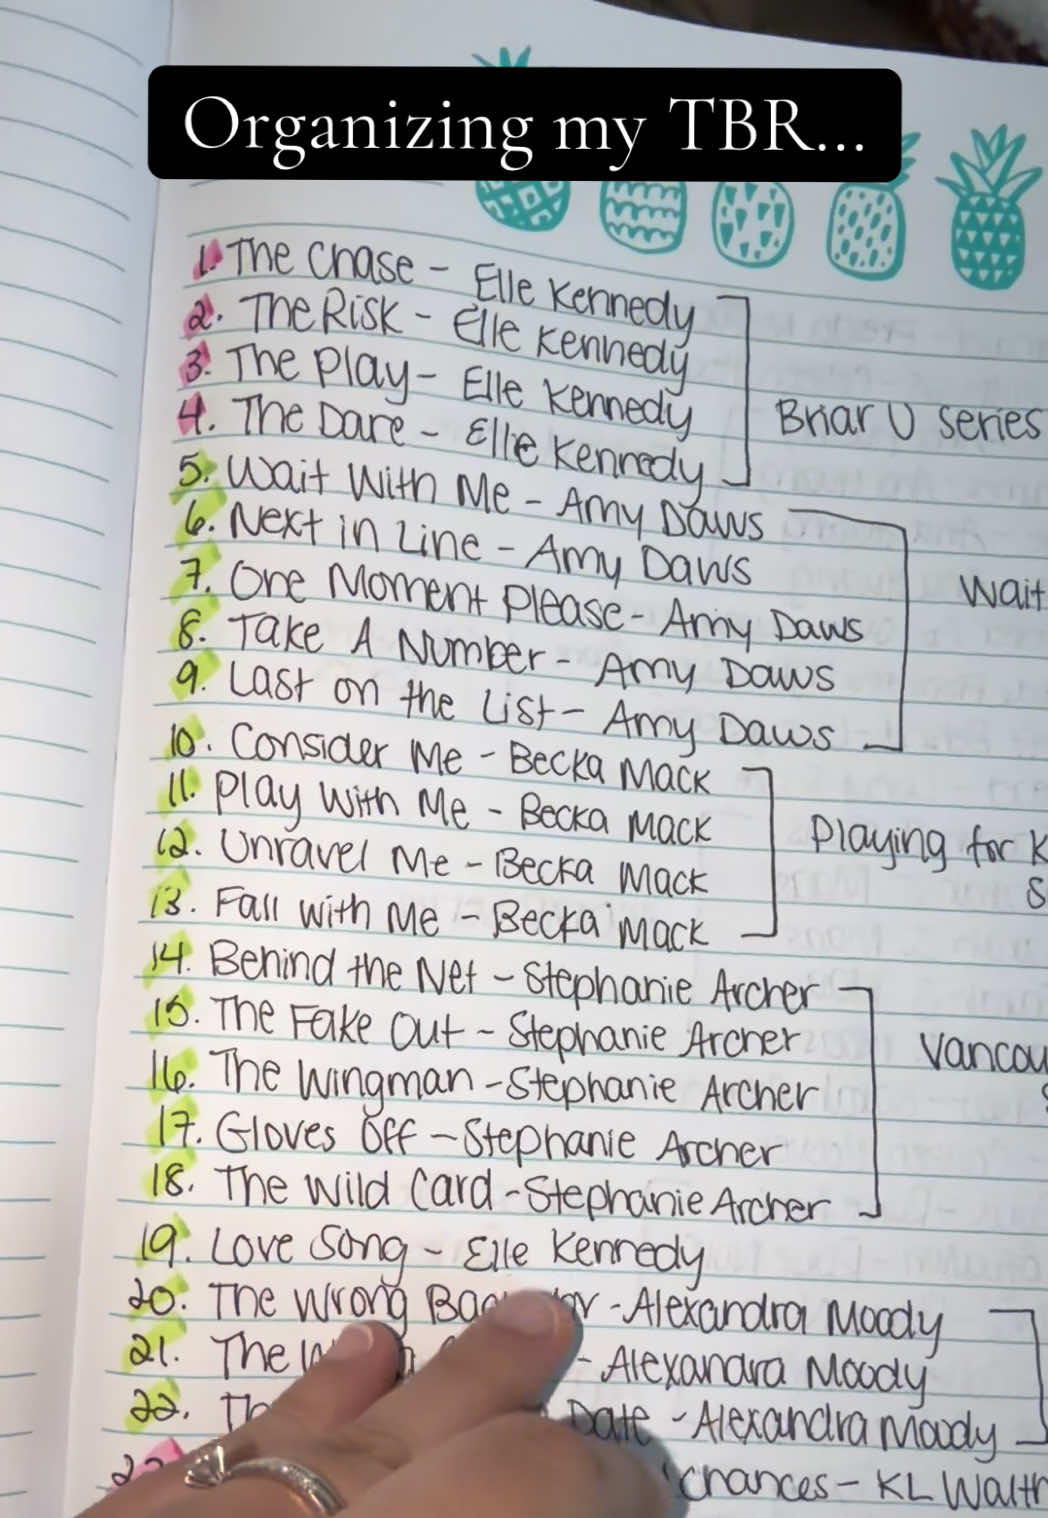 Organizing my TBR...
1. The Chase - Elle Kennedy
2. The Risk - Elle Kennedy
3. The Play - Elle Kennedy
4. The Dare - Elle Kennedy
Briar U series
5. Wait With Me - Amy Daws
6. Next in Line - Amy Daws
7. One Moment Please - Amy Daws
8. Take A Number - Amy Daws
9. Last on the List - Amy Daws
Wait
10. Consider Me - Becka Mack
11. Play With Me - Becka Mack
12. Unravel Me - Becka Mack
13. Fall with Me - Becka Mack
Playing for K
S
14. Behind the Net - Stephanie Archer
15. The Fake Out - Stephanie Archer
16. The Wingman - Stephanie Archer
17. Gloves Off - Stephanie Archer
18. The Wild Card - Stephanie Archer
Vancou
19. Love Song - Elle Kennedy
20. The Wrong - Alexandra Moody
21. The - Alexandra Moody
22. Date - Alexandra Moody
Chances - KL Walth